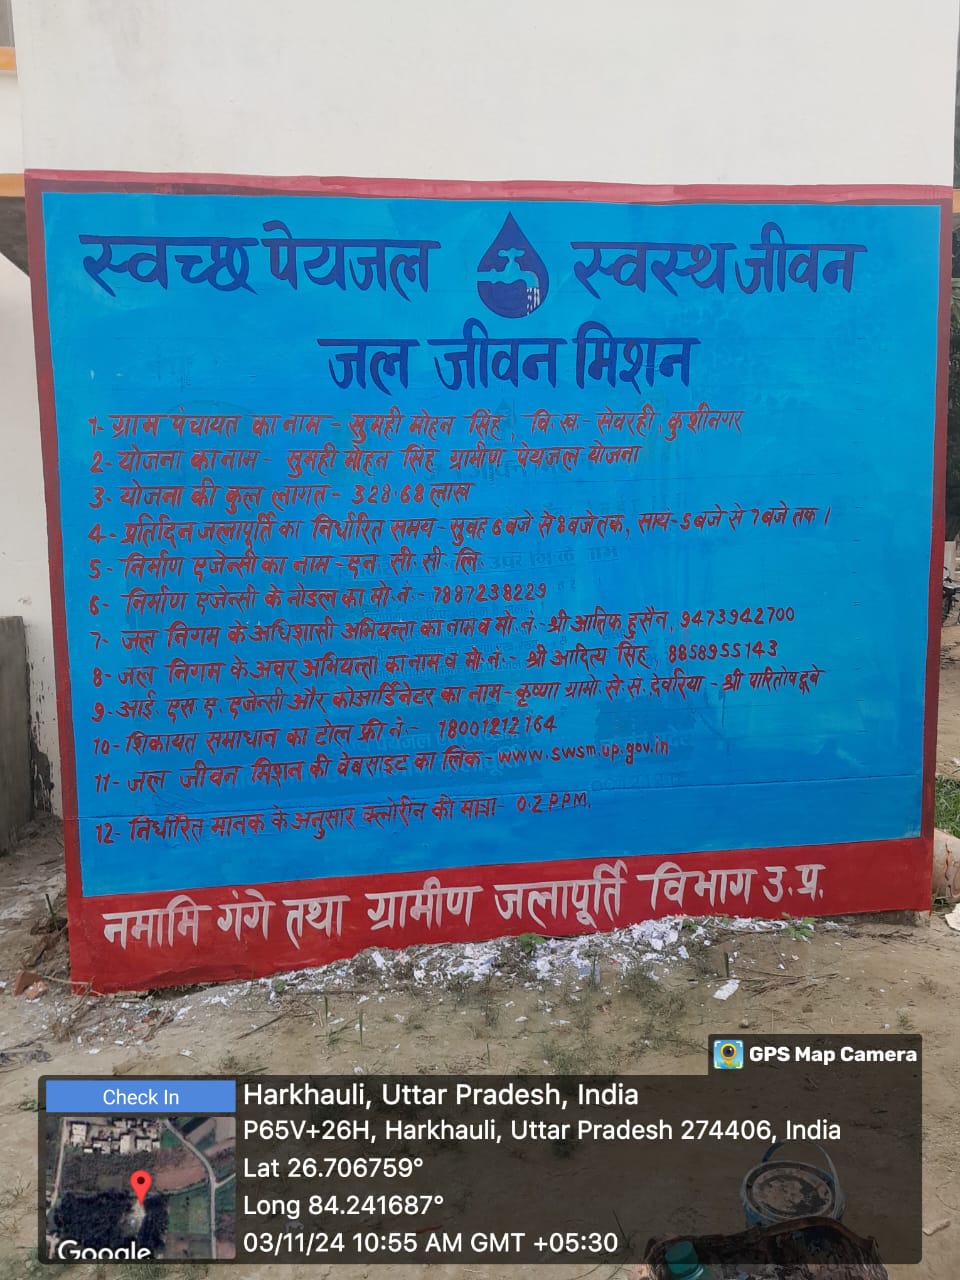 स्वच्छ पेयजल स्वस्थ जीवन
जल जीवन मिशन
1- ग्राम पंचायत का नाम - सुमही मोहन सिंह, वि.ख.- सेवरही, कुशीनगर
2- योजना का नाम - सुमही मोहन सिंह ग्रामीण पेयजल योजना
3- योजना की कुल लागत - 328.68 लाख
4- प्रतिदिन जलापूर्ति का निर्धारित समय - सुबह 6 बजे से 8 बजे तक, सायं- 5 बजे से 7 बजे तक।
5- निर्माण एजेन्सी का नाम - एन. सी. सी. लि.
6- निर्माण एजेन्सी के नोडल का मो. नं.- 7887238229
7- जल निगम के अधिशासी अभियन्ता का नाम व मो. नं.- श्री आतिफ हुसैन, 9473942700
8- जल निगम के अवर अभियन्ता का नाम व मो. नं. श्री आदित्य सिंह 8858955143
9- आई. एस. ए. एजेन्सी और कोआर्डिनेटर का नाम - कृष्णा ग्रामो. से. सं. देवरिया - श्री पारितोष दूबे
10- शिकायत समाधान का टोल फ्री नं.- 18001212164
11- जल जीवन मिशन की वेबसाइट का लिंक - www.swsm.up.gov.in
12- निर्धारित मानक के अनुसार क्लोरीन की मात्रा- 0.2 P.P.M.
नमामि गंगे तथा ग्रामीण जलापूर्ति विभाग उ.प्र.
GPS Map Camera
Check In
Harkhauli, Uttar Pradesh, India
P65V+26H, Harkhauli, Uttar Pradesh 274406, India
Lat 26.706759°
Long 84.241687°
03/11/24 10:55 AM GMT +05:30
Google